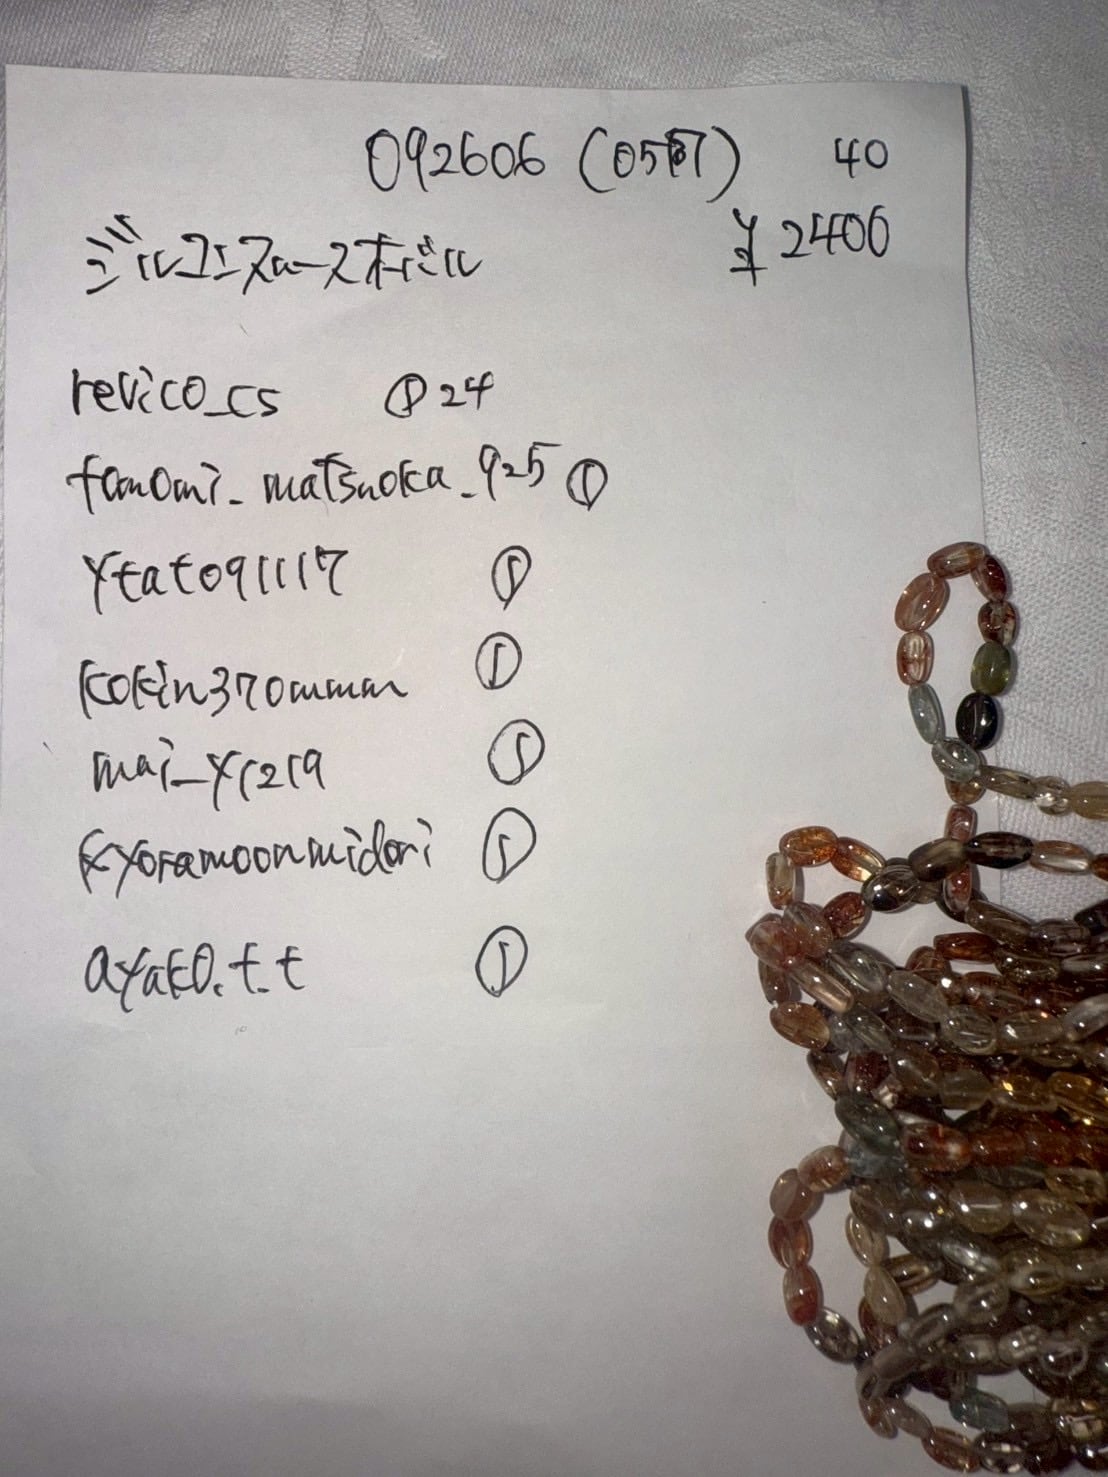 092606 (0557) 40
ジルコンスムースオーバル ¥2400
revico_cs ① 24
tomomi_matsuoka_925 ①
ytato91117 ①
kokin370mmm ①
mai_y1219 ①
kyoramoonmidori ①
ayako.t.t ①